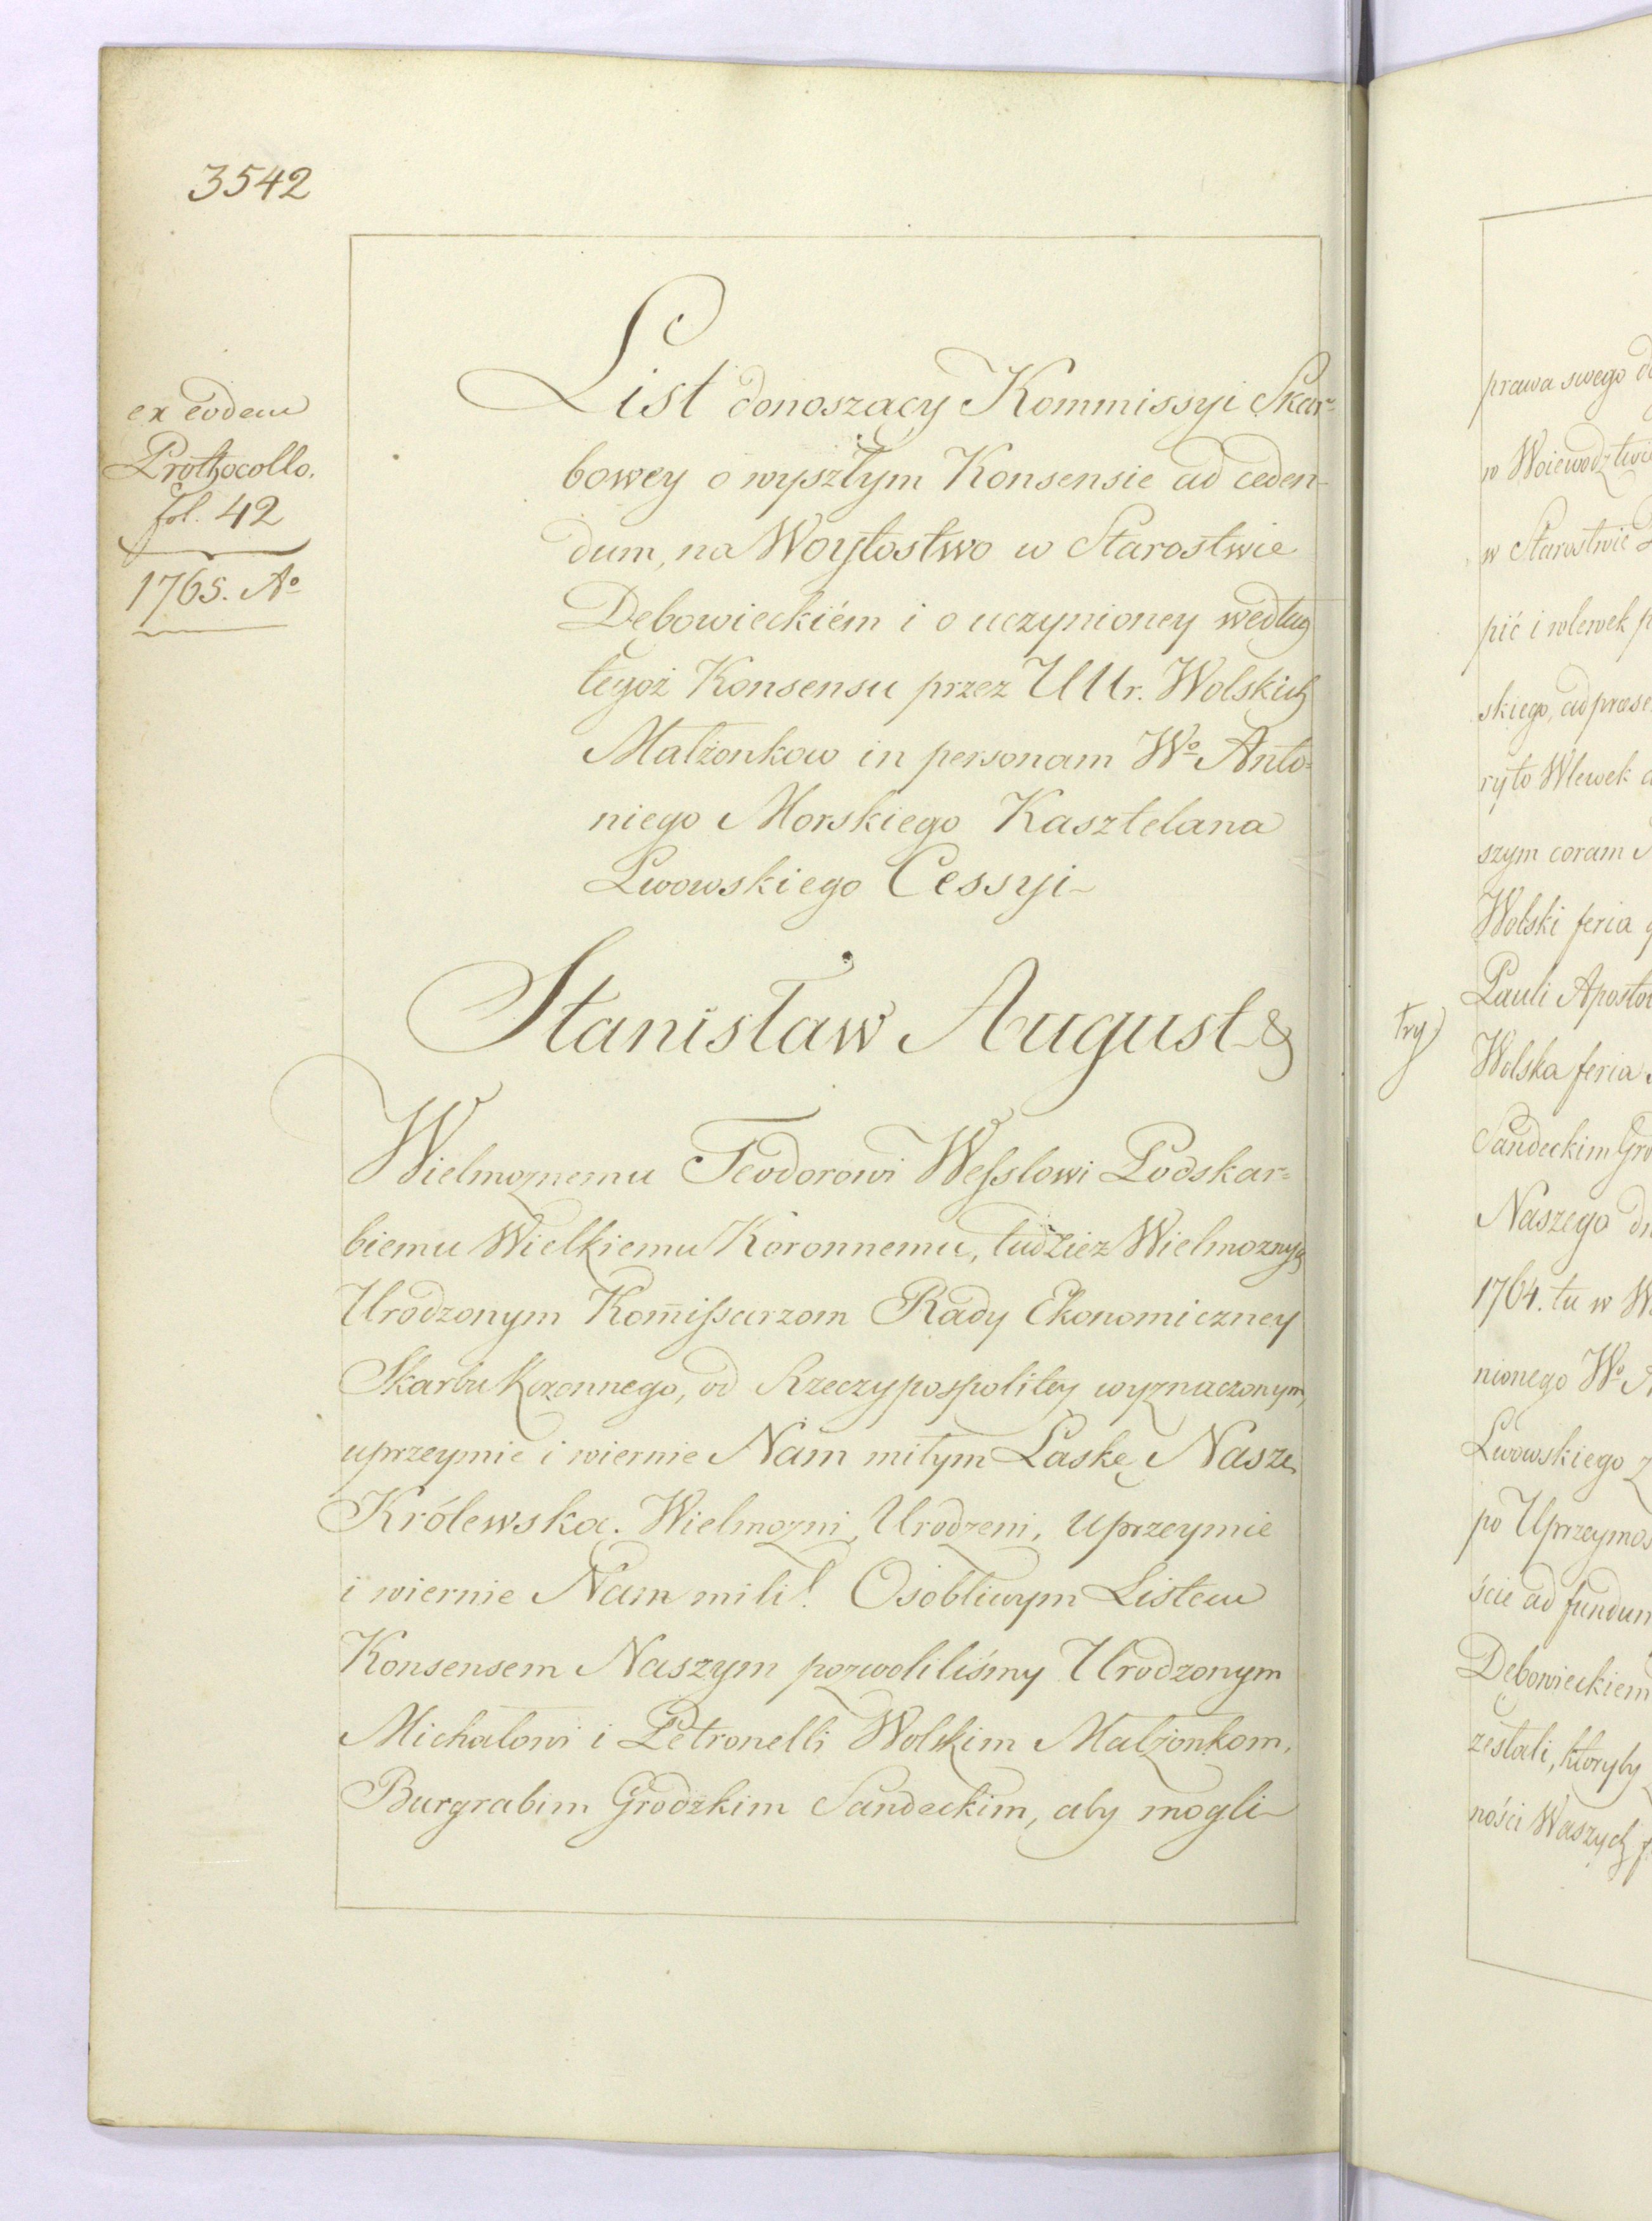 3542
ex eodem
Prothocollo.
fol. 42
1765. Aº
List donoszący Kommissyi Skar-
bowey o wyszłym Konsensie ad ceden-
dum, na Woytostwo w Starostwie
Debowieckiém i o uczynioney według
tegoż Konsensu przez UUr. Wolskich
Małżonkow in personam Wº Anto-
niego Morskiego Kasztelana
Lwowskiego Cessyi
Stanisław August &
Wielmoznemu Teodorowi Wesslowi Podskar-
biemu Wielkiemu Koronnemu, tudzież Wielmoznych
Urodzonym Kom̄issarzom Rady Ekonomiczney
Skarbu Koronnego, od Rzeczypospolitey wyznaczonym,
uprzeymie i wiernie Nam miłym Łaskę Naszę
Królewską. Wielmozni, Urodzeni, Uprzeymie
i wiernie Nam mili! Osobliwym Listem
Konsensem Naszym pozwoliliśmy Urodzonym
Michałowi i Petronelli Wolskim Małżonkom,
Burgrabim Grodzkim Sandeckim, aby mogli
prawa swego
w Woiewodztwie
w Starostwie
pić i wlewek
skiego, ad
ryto Wlewek
szym coram
Wolski feria
Pauli
try
Wolska feria
Sandeckim
Naszego
1764. tu w
nionego Wº
Lwowskiego
po
ście ad
Dębowieckiem
zestali, ktoryby
ności Waszych